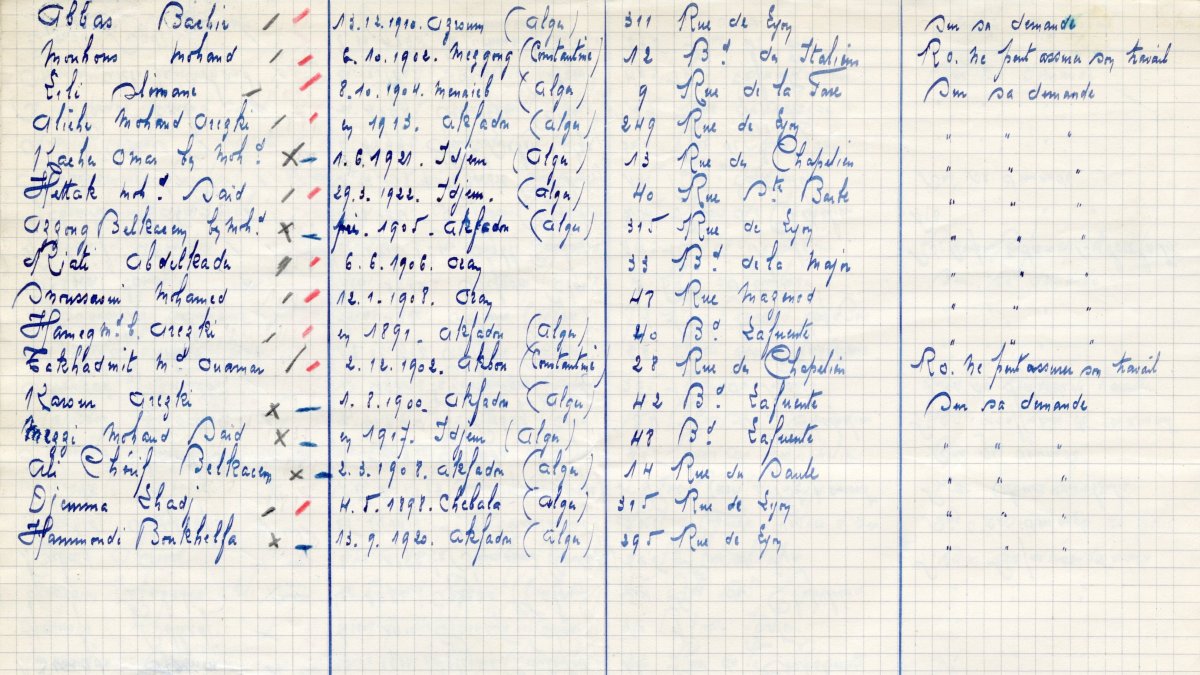 Abbas Bachir / / 13.12.1910. Agroum (Alger) 311 Rue de Lyon Sur sa demande
Mouhous Mohand / / 6.10.1902. Meggong (Constantine) 12 Bd des Italiens R.O. Ne peut assurer son travail
Lili Slimane / / 8.10.1904. Menaieb (Alger) 9 Rue de la Fare Sur sa demande
Aliche Mohand Arezki / / en 1913. Akfadou (Alger) 249 Rue de Lyon " " "
Kacher Omar ben Mohd X – 1.6.1921. Idjem (Alger) 13 Rue du Chapelier " " "
Hettak Mohd Said / / 29.3.1922. Idjem. (Alger) 40 Rue Ste Barbe " " "
Azzoug Belkacem ben Mohd X – 1905. Akfadou (Alger) 315 Rue de Lyon " " "
Riati Abdelkader / / 6.6.1906. Oran 33 Bd de la Major " " "
Snoussaoui Mohamed / / 12.1.1908. Oran 47 Rue Mazenod " " "
Hameg Md b. Arezki / / en 1891. Akfadou (Alger) 40 Bd Lafuente " " "
Takhadmit Md Ouamar / / 2.12.1902. Akbou (Constantine) 28 Rue du Chapelier R.O. Ne peut assurer son travail
Karoun Arezki X – 1.8.1900. Akfadou (Alger) 42 Bd Lafuente Sur sa demande
Meggi Mohand Said X – en 1917. Idjem (Alger) 48 Bd Lafuente " " "
Ali Chérif Belkacem X – 2.3.1908. Akfadou (Alger) 14 Rue du Baule " " "
Djemma Lhadj / / 4.5.1898. Chebala (Alger) 315 Rue de Lyon " " "
Hammoudi Boukhelfa X – 13.9.1920. Akfadou (Alger) 395 Rue de Lyon " " "